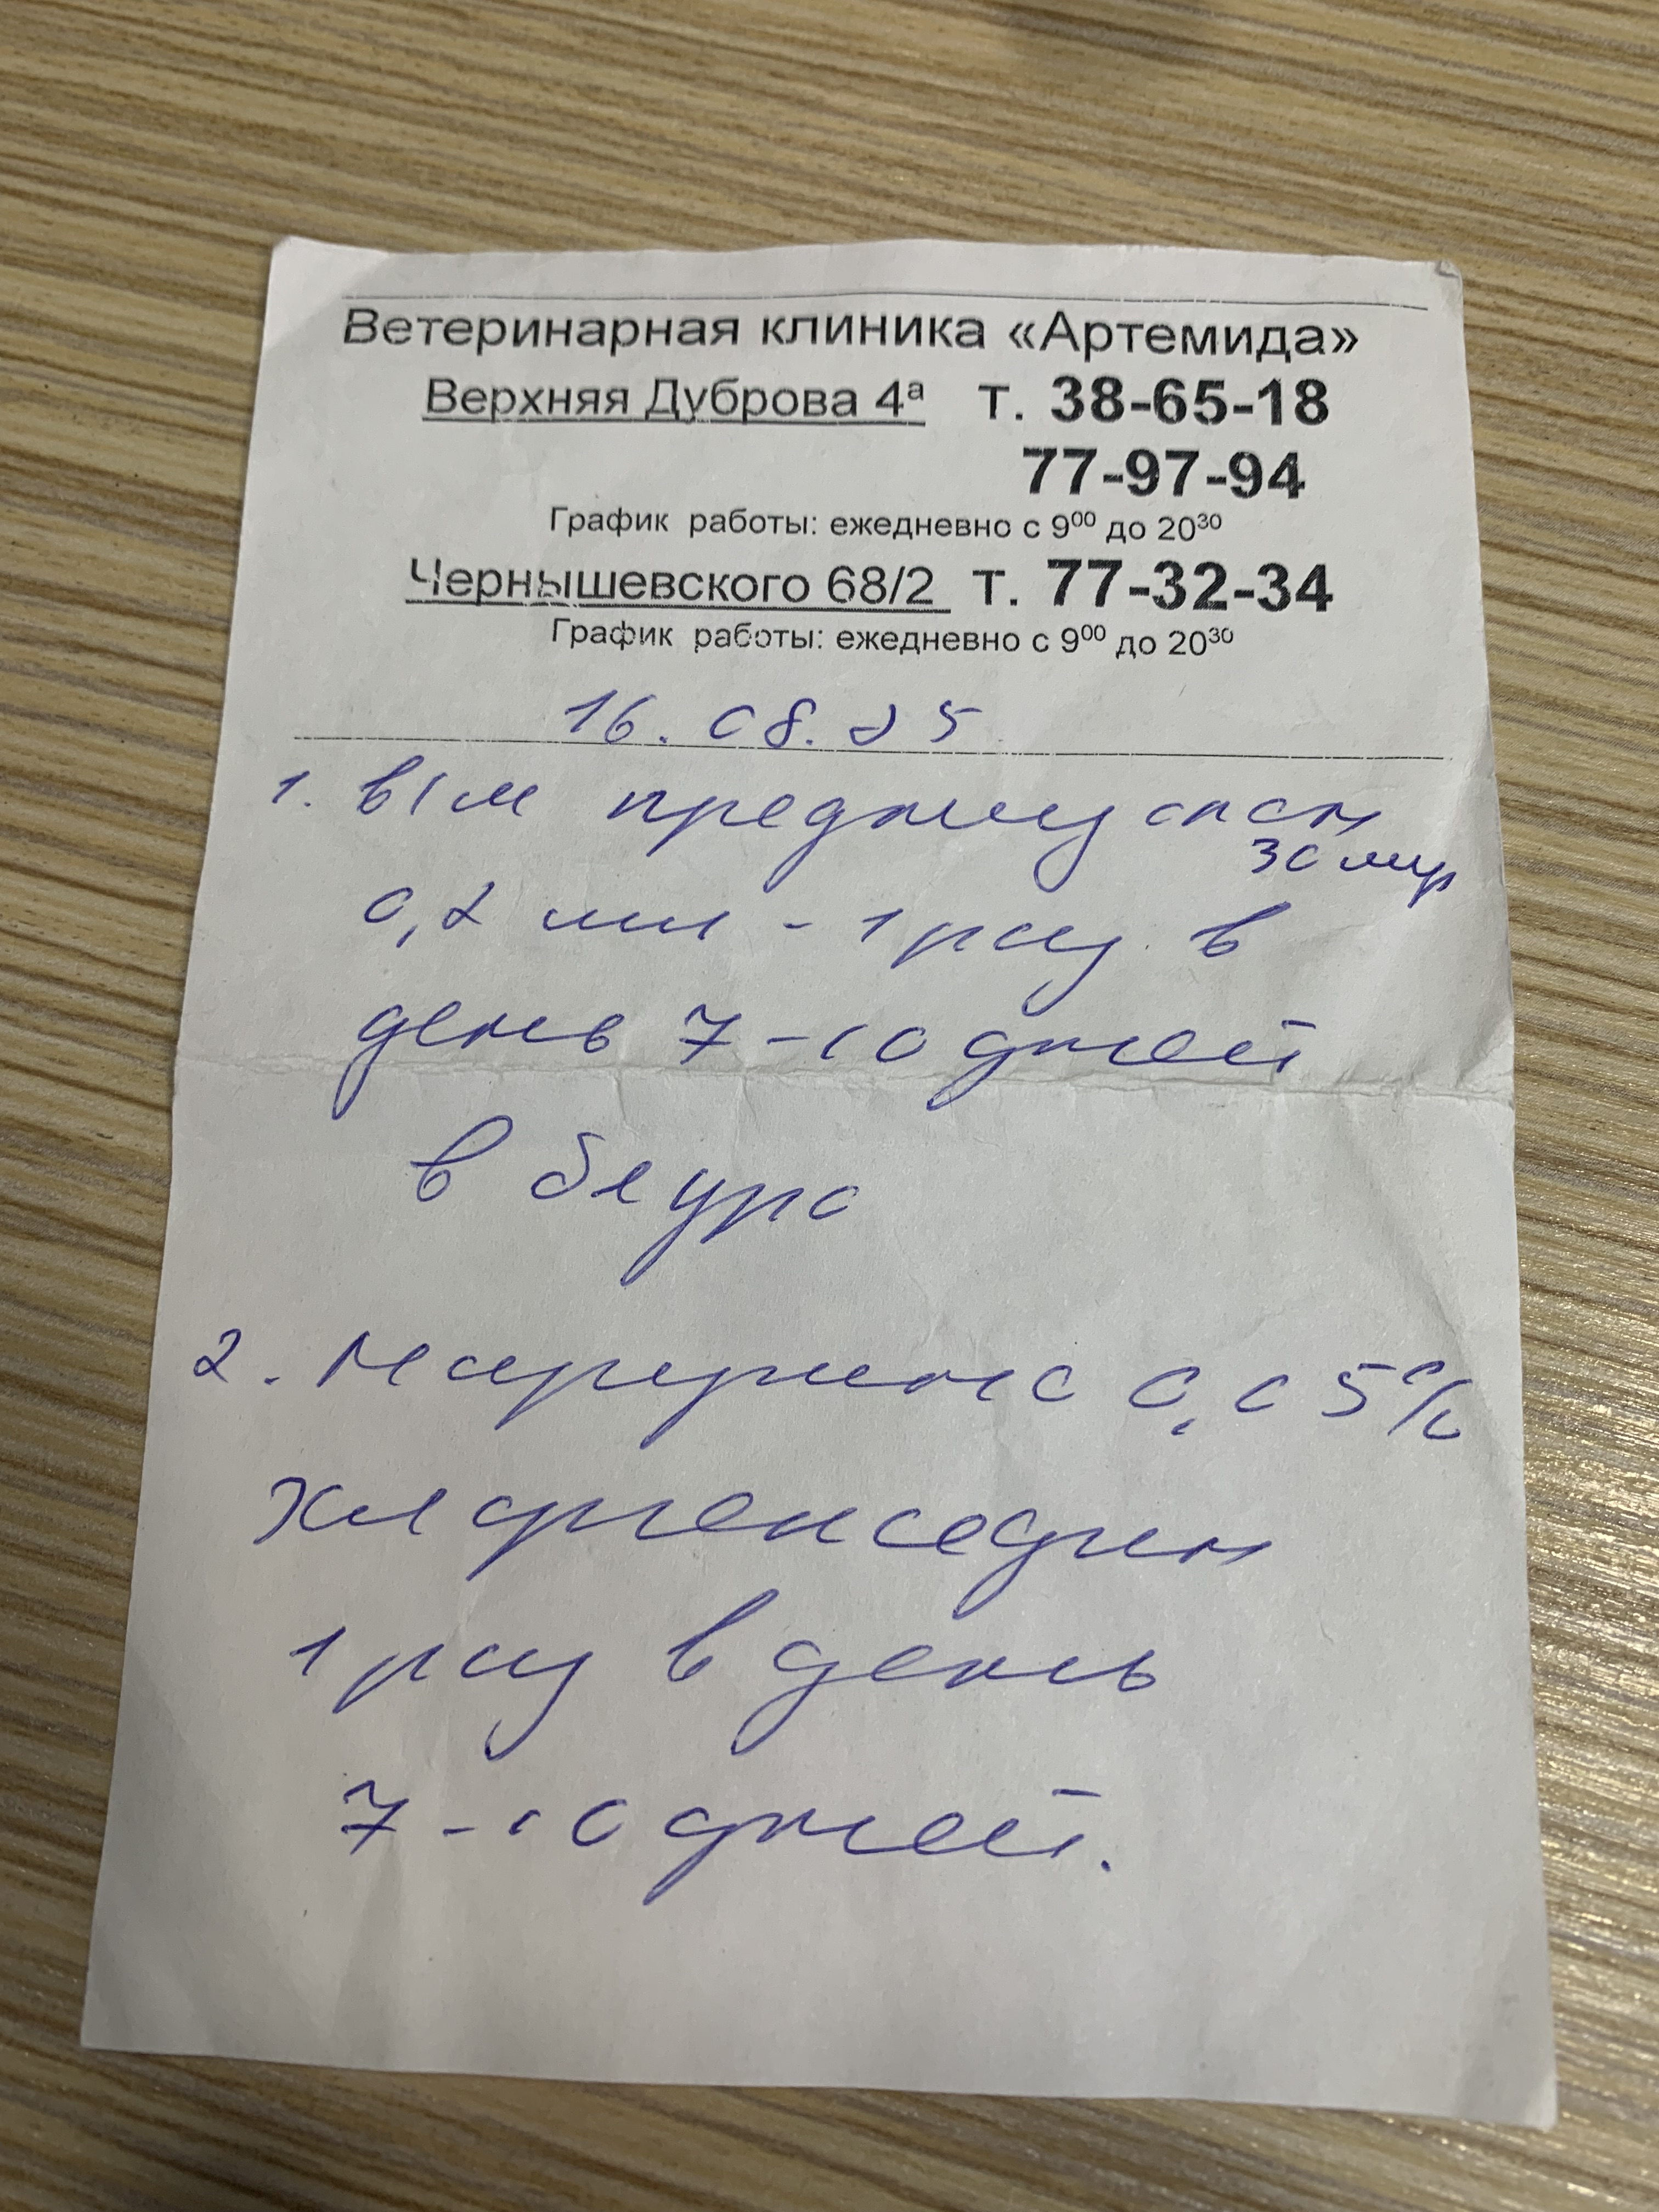 Ветеринарная клиника «Артемида»
Верхняя Дуброва 4ª т. 38-65-18
77-97-94
График работы: ежедневно с 9⁰⁰ до 20³⁰
Чернышевского 68/2 т. 77-32-34
График работы: ежедневно с 9⁰⁰ до 20³⁰
16.08.25
1. в/м преднизолон
30 мг
0,2 мл - 1 раз в
день 7-10 дней
в бедро
2. 0,05%
хлоргекседин
1 раз в день
7-10 дней.